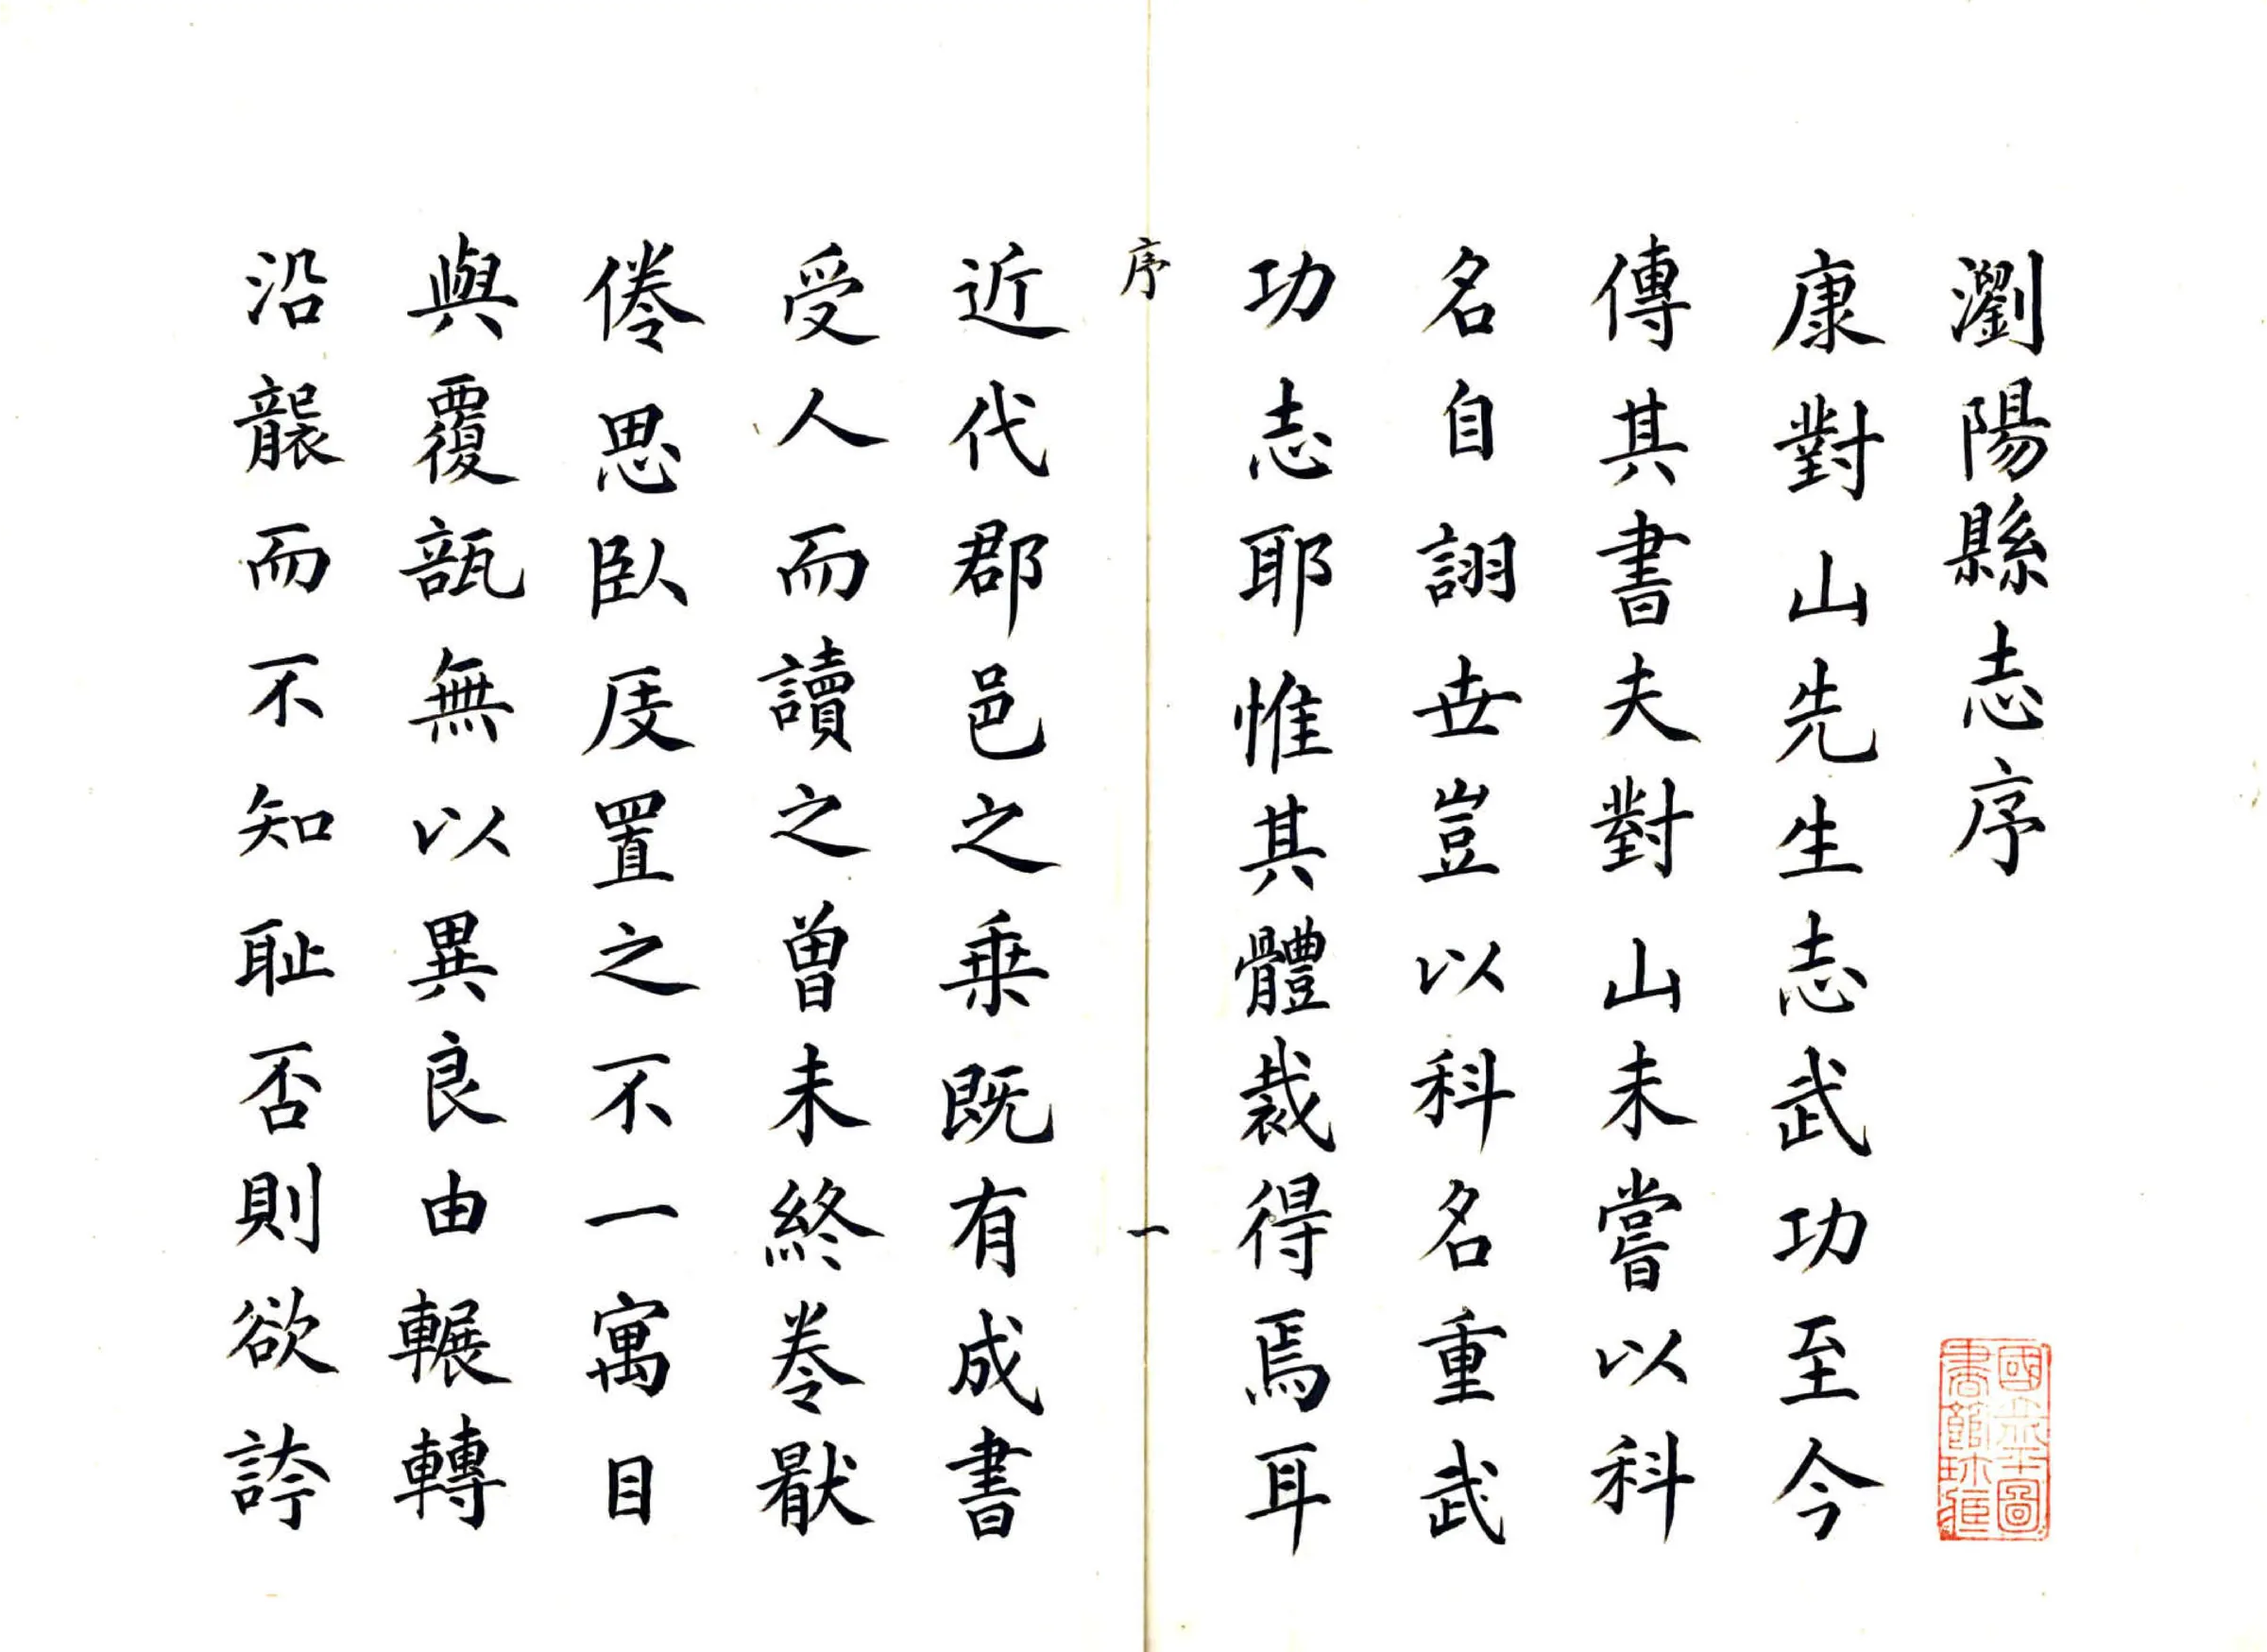 瀏陽縣志序
康對山先生志武功至今
傳其書夫對山未嘗以科
名自詡世豈以科名重武
功志耶惟其體裁得焉耳
序
一
近代郡邑之乗既有成書
受人而讀之曾未終卷猒
倦思臥庋置之不一寓目
與覆瓿無以異良由輾轉
沿襲而不知耻否則欲誇
國立北平圖
書館珍藏